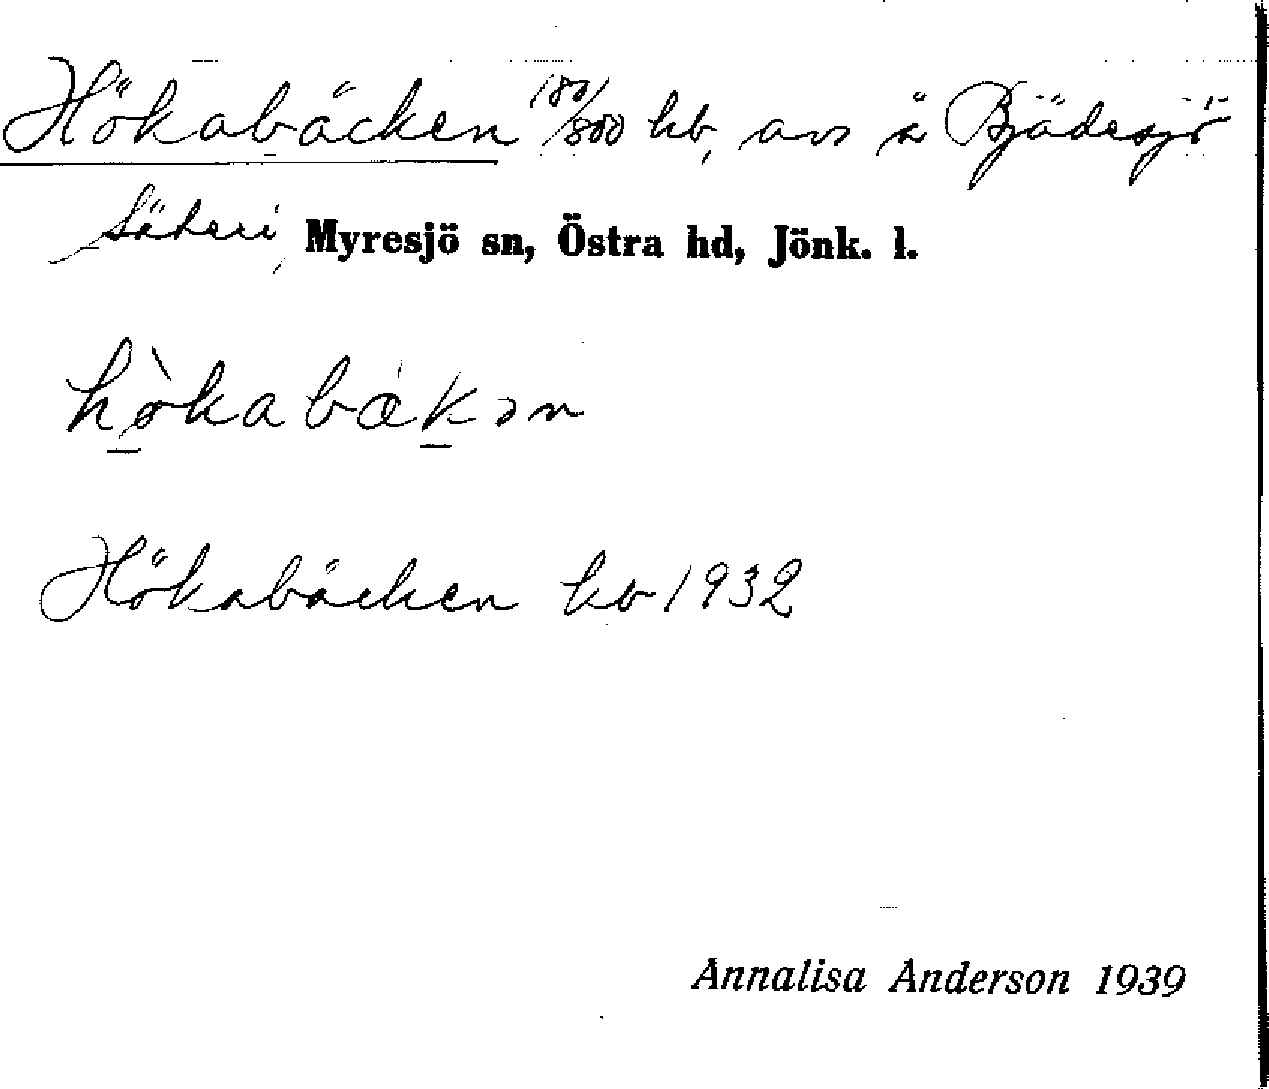 Hökabäcken 180/800 hb, avs å Bjädesjö
Säteri, Myresjö sn, Östra hd, Jönk. l.
hò̠kabæ̀k̠ən
Hökabäcken kb 1932
Annalisa Anderson 1939